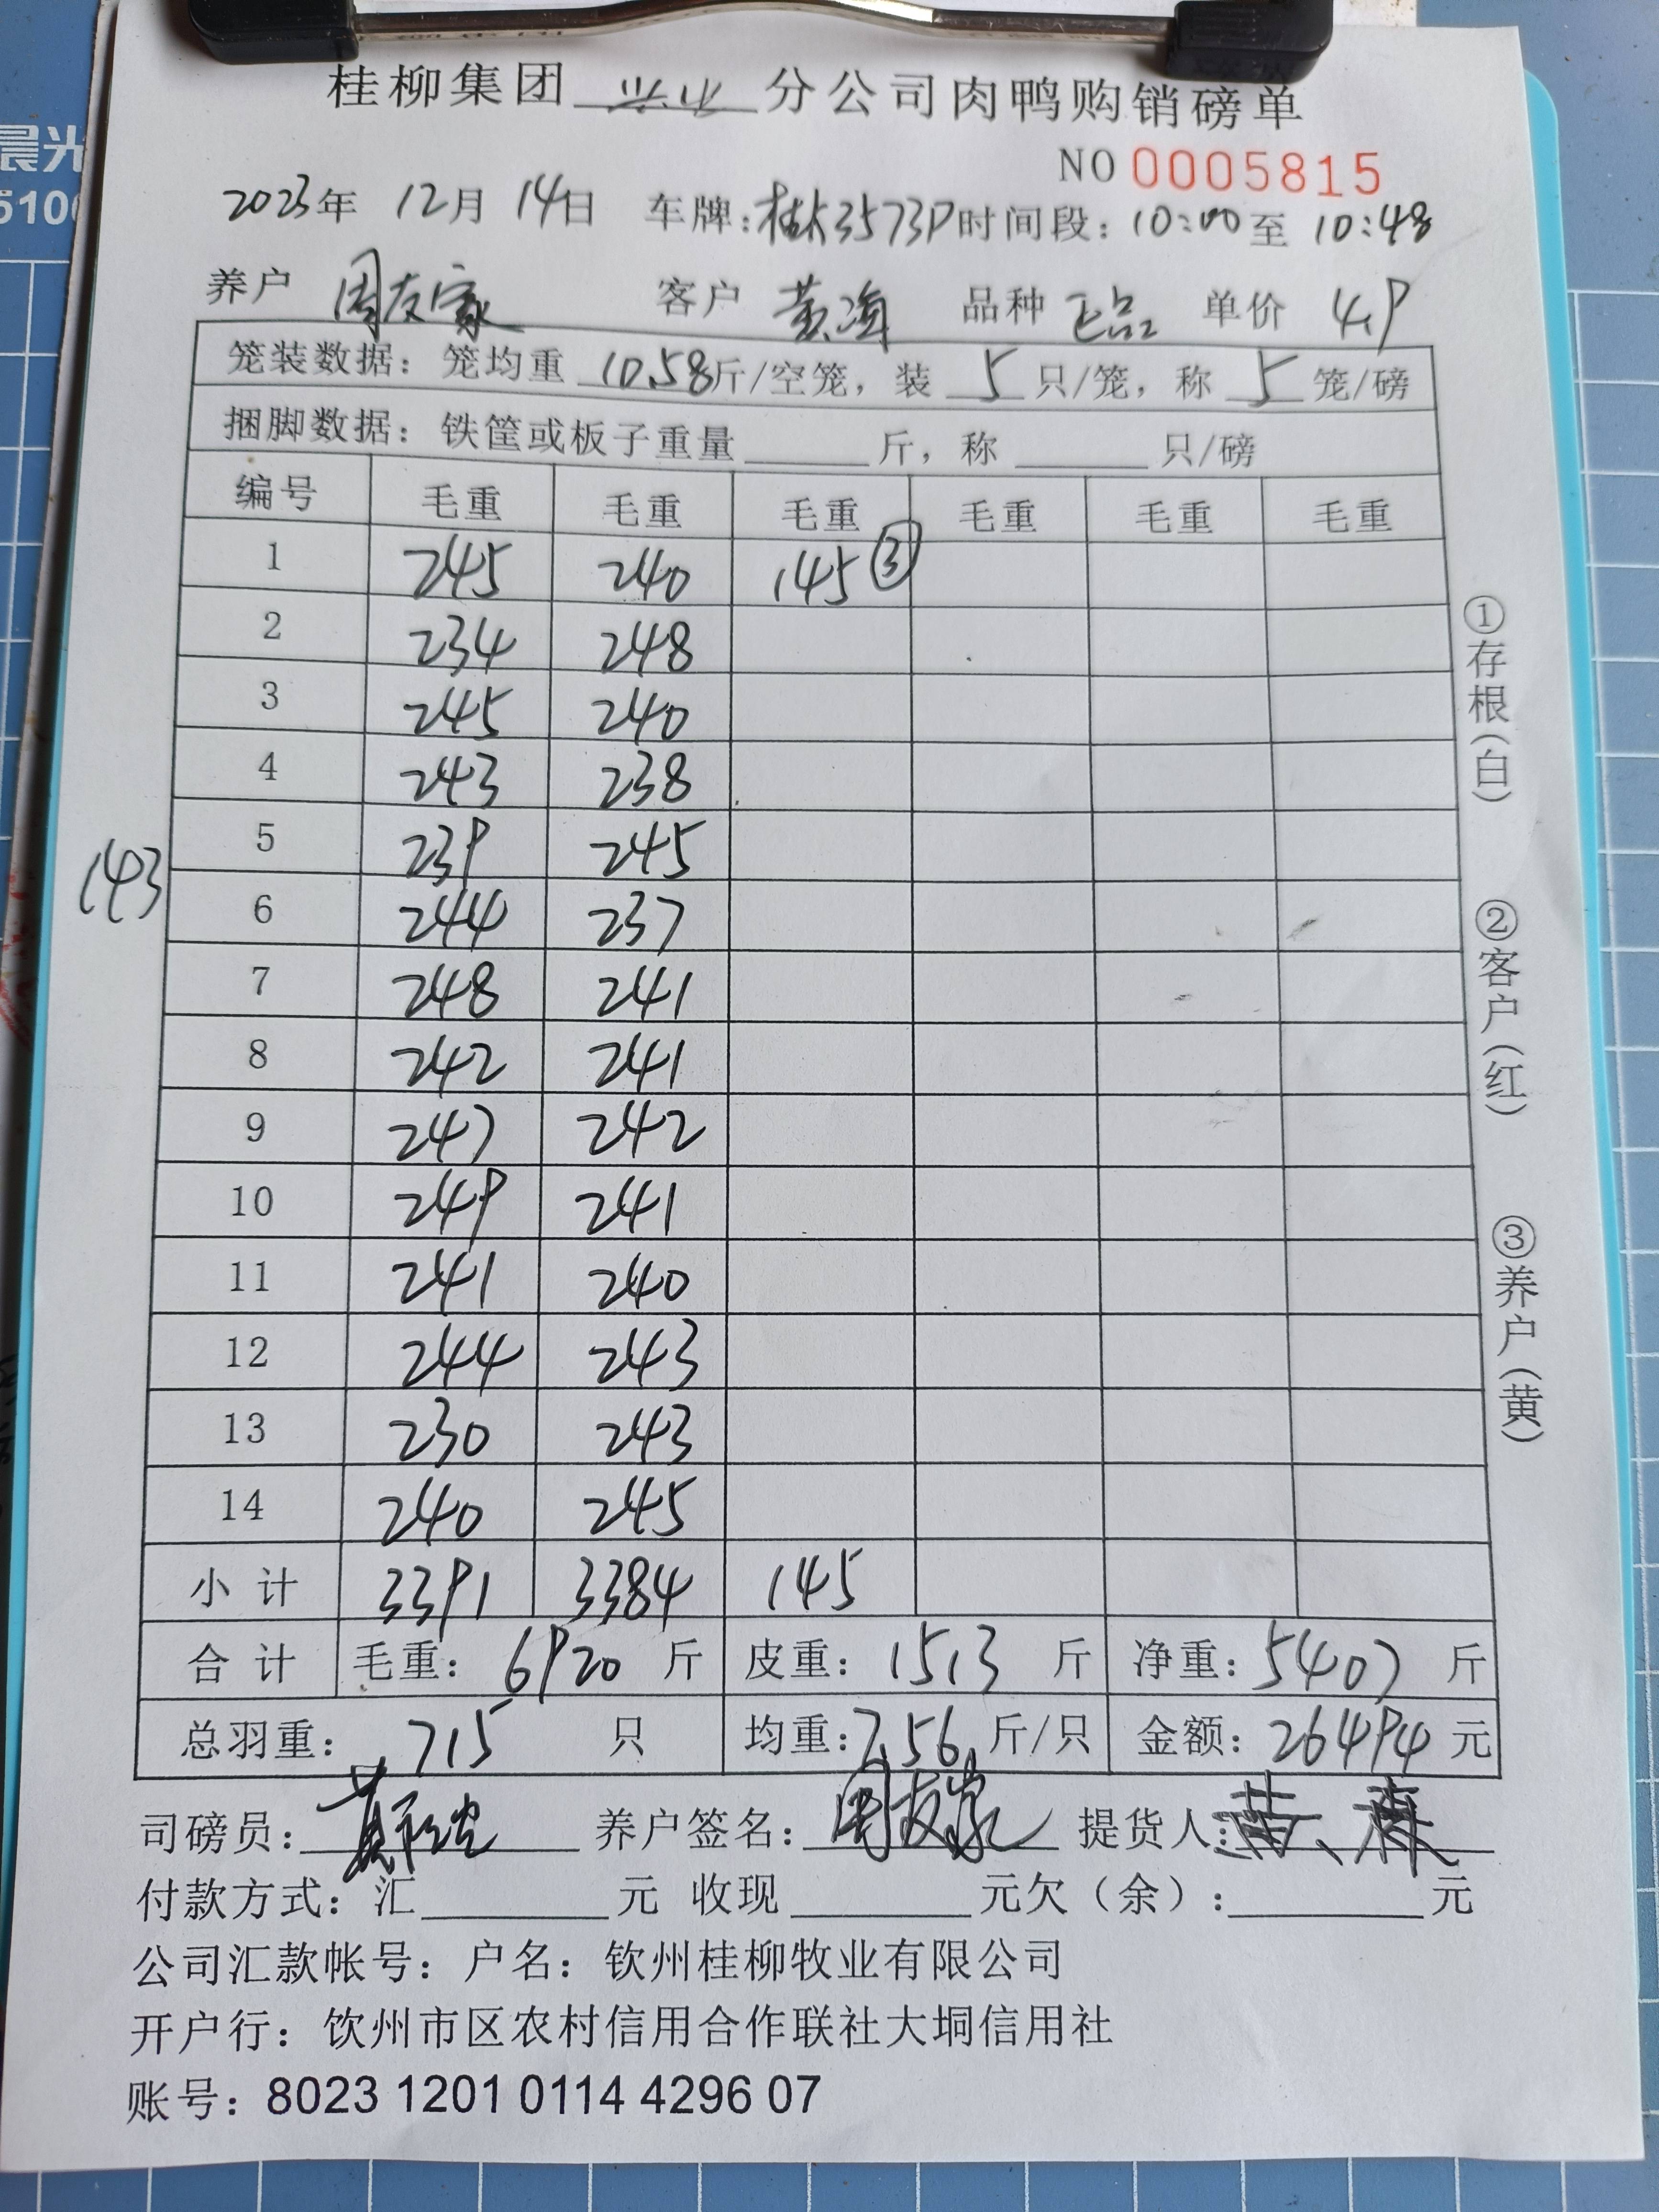 桂柳集团 兴业 分公司肉鸭购销磅单
NO 0005815
2023年 12月 14日 车牌: 桂K3573P 时间段: 10:00 至 10:48
养户 周友家 客户 黄海 品种 正品 单价 4.9
笼装数据: 笼均重 10.58 斤/空笼, 装 5 只/笼, 称 5 笼/磅
捆脚数据: 铁筐或板子重量 斤, 称 只/磅
编号 毛重 毛重 毛重 毛重 毛重 毛重
1 245 240 145 ③
2 234 248
3 245 240
4 243 238
5 239 245
6 244 237
7 248 241
8 242 241
9 247 242
10 249 241
11 241 240
12 244 243
13 230 243
14 240 245
小计 3391 3384 145
合计 毛重: 6920 斤 皮重: 1513 斤 净重: 5407 斤
总羽重: 715 只 均重: 7.56 斤/只 金额: 26494 元
司磅员: 养户签名: 周友家 提货人:
付款方式: 汇 元 收现 元欠(余): 元
公司汇款帐号: 户名: 钦州桂柳牧业有限公司
开户行: 饮州市区农村信用合作联社大垌信用社
账号: 8023 1201 0114 4296 07
143
①存根(白)
②客户(红)
③养户(黄)
晨光